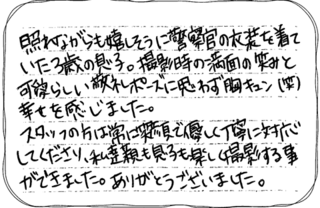 照れながらも嬉しそうに警察官の衣装を着て
いた3歳の息子。撮影時の満面の笑みと
可愛らしい敬礼ポーズに思わず胸キュン(笑)
幸せを感じました。
スタッフの方は常に笑顔で優しく丁寧に対応
してくださり、私達親も息子も楽しく撮影する事
ができました。ありがとうございました。